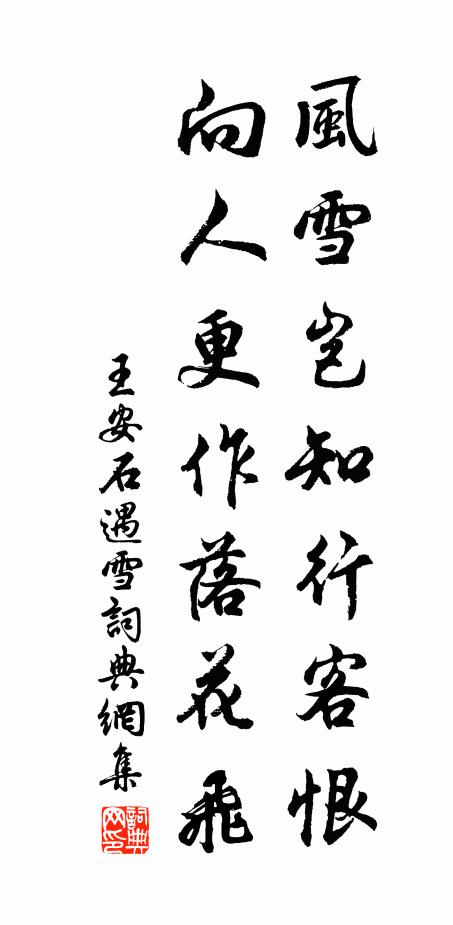 風雪豈知行客恨
向人更作落花飛
王安石遇雪詞典網集
詞典网印